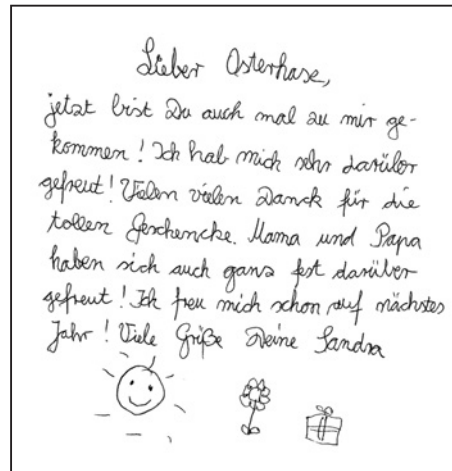 Lieber Osterhase,
jetzt bist Du auch mal zu mir ge-
kommen! Ich hab mich sehr darüber
gefreut! Vielen vielen Danck für die
tollen Geschencke. Mama und Papa
haben sich auch ganz fest darüber
gefreut! Ich freu mich schon auf nächstes
Jahr! Viele Grüße Deine Sandra